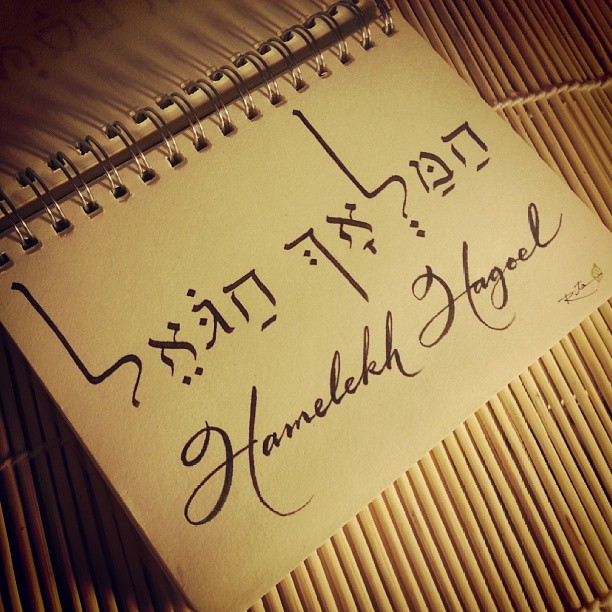 הַמַּלְאָךְ הַגֹּאֵל
Hamelekh Hagoel
Rita